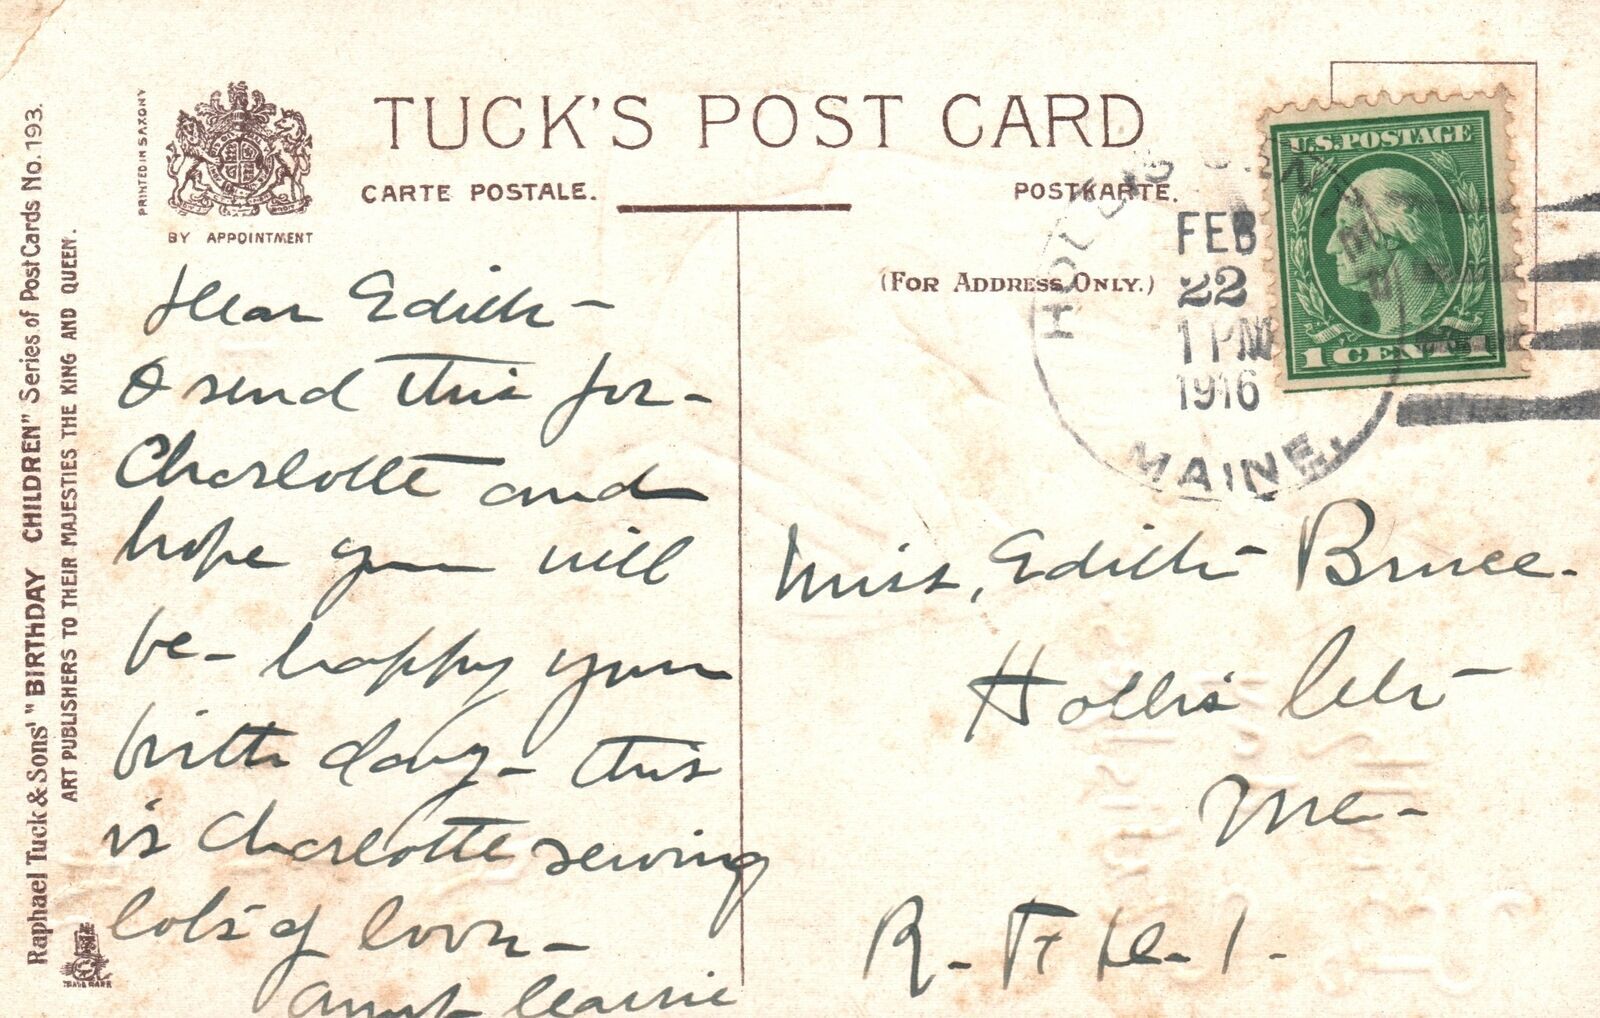 TUCK'S POST CARD
CARTE POSTALE.
POSTKARTE.
(FOR ADDRESS ONLY.)
PRINTED IN SAXONY
BY APPOINTMENT
Raphael Tuck & Sons' "BIRTHDAY CHILDREN" Series of Post Cards No. 193.
ART PUBLISHERS TO THEIR MAJESTIES THE KING AND QUEEN.
TRADE MARK
U.S. POSTAGE
1 CENT 1
HOLLIS
FEB
22
1 PM
1916
MAINE.
Dear Edith-
I send this for-
Charlotte and
hope you will
be- happy your
birth day- this
is Charlotte sewing
lots of love-
Aunt
Miss, Edith Bruce.
Hollis Ctr
Me-
R. F. D. 1.